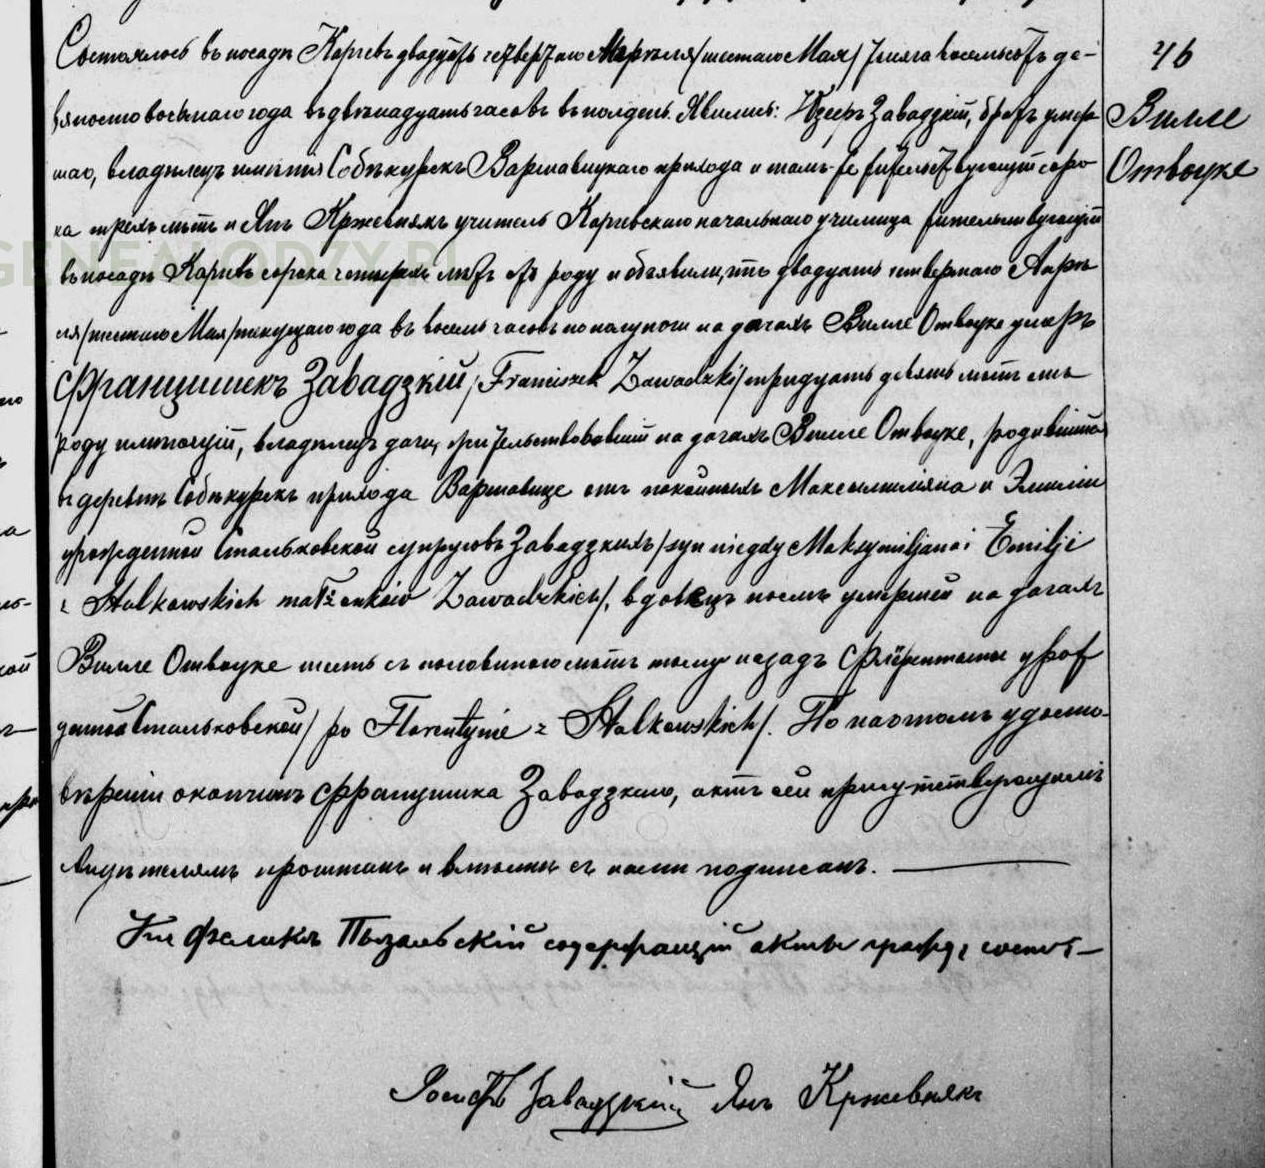 Состоялось въ посадѣ Карчевъ двадцать четвертаго Апрѣля /шестаго Мая/ тысяча восемьсотъ де-
вяносто восьмаго года въ двѣнадцать часовъ въ полдень. Явились: Завадзкій, братъ умер
шаго, владѣлецъ имѣнія Собѣкурскъ Варшавицкаго прихода и тамъ-же жительствующій соро
ка трехъ лѣтъ и Янъ Кржевнякъ учитель Карчевскаго начальнаго училища жительствующій
въ посадѣ Карчевъ сорока четырехъ лѣтъ отъ роду и объявили, что двадцать четвертаго Апрѣ
ля /шестаго Мая/ текущаго года въ восемь часовъ по полуночи на дачахъ Вилле Отвоцке умеръ
Францишекъ Завадзкій, /Franciszek Zawadzki/ тридцать девять лѣтъ отъ
роду имѣющій, владѣлецъ дачи, жительствовавшій на дачахъ Вилле Отвоцке, родившійся
въ деревнѣ Собѣкурскъ прихода Варшавице отъ покойныхъ Максымиліяна и Эмиліи
урожденной Стальковской супруговъ Завадзкихъ /syn niegdy Maksymiljana i Emilji
z Stalkowskich małżonków Zawadzkich/, вдовецъ послѣ умершей на дачахъ
Вилле Отвоцке шесть съ половиною лѣтъ тому назадъ Флёрентыны урож
денной Стальковской /po Florentynie z Stalkowskich/. По настомъ удосто-
вѣреніи о кончинѣ Францишка Завадзкаго, актъ сей присутствующимъ
свидѣтелямъ прочитанъ и вмѣстѣ съ ними подписанъ.
Кс. Феликсъ содержащій акты гражд. сост.
Іосифъ Завадзкій Янъ Кржевнякъ
46
Вилле
Отвоцке
GENEALODZY.PL